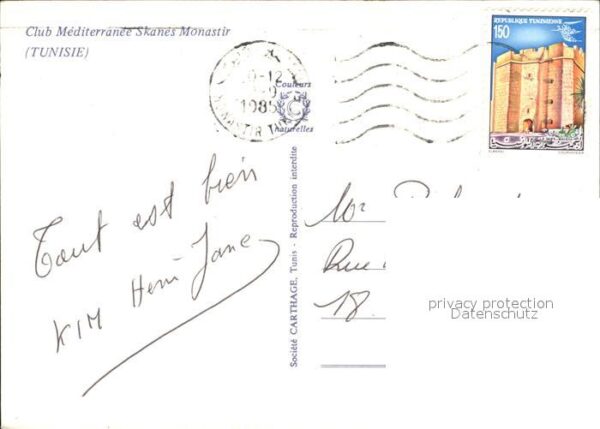 Club Méditerranée Skanès Monastir
(TUNISIE)
RÉPUBLIQUE TUNISIENNE
150
10-12
1985
Couleurs
C
naturelles
Société CARTHAGE, Tunis - Reproduction interdite
Tout est bien
KIM Henri Jane
Mr
Rue
18
privacy protection
Datenschutz